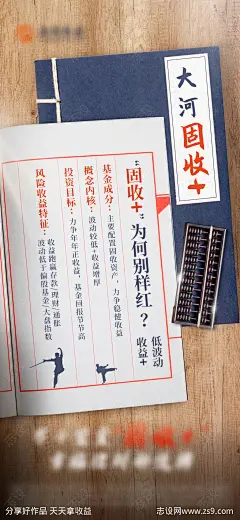 大河
固收+
“固收+”为何别样红？
低波动
收益+
基金成分：主要配置固收资产，力争稳健收益
概念内核：波动较低+收益增厚
投资目标：力争年年正收益，基金回报节节高
风险收益特征：
收益跑赢存款/理财/通胀
波动低于偏股基金/大盘指数
分享好作品 天天拿收益
志设网 www.zs9.com